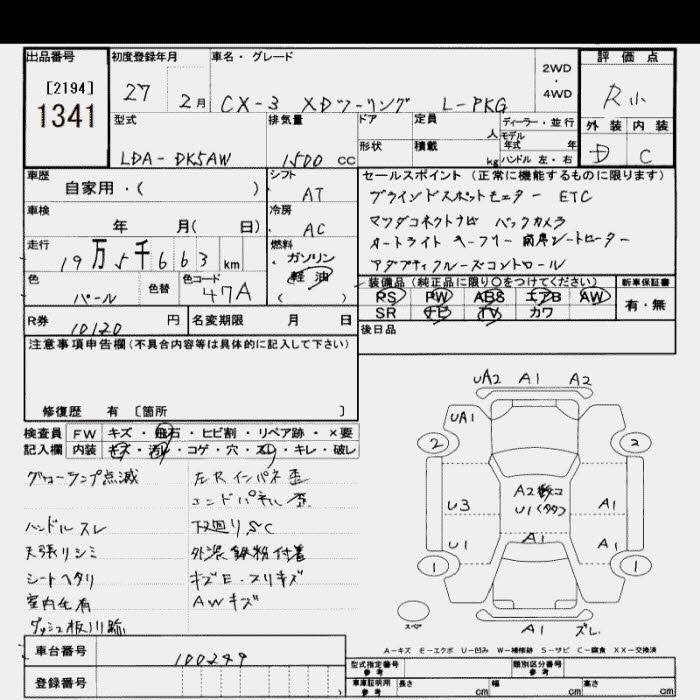 出品番号 初度登録年月 車名・グレード 2WD・4WD 評価点
[2194] 1341 27 2月 CX-3 XDツーリング L-PKG R小
型式 排気量 ドア 定員 人 ディーラー・並行 外装 内装
LDA-DK5AW 1500 cc 形状 積載 kg モデル年式 年 ハンドル 左・右 D C
車歴 シフト セールスポイント (正常に機能するものに限ります)
自家用・( ) AT ブラインドスポットモニター ETC
車検 冷房 マツダコネクトナビ バックカメラ
年 月( 日) AC オートライト キーフリー 前席シートヒーター
走行 燃料 アダプティブクルーズコントロール
19万5千663km ガソリン 軽油 ( )
色 色替 色コード 装備品 (純正品に限り○をつけてください) 新車保証書
パール 47A PS PW ABS エアB AW 有・無
SR ナビ TV カワ
R券 10120 円 名変期限 月 日 後日品
注意事項申告欄 (不具合内容等は具体的に記入して下さい)
修復歴 有 〔箇所 〕
検査員 FW キズ・飛石・ヒビ割・リペア跡・×要
記入欄 内装 キズ・汚レ・コゲ・穴・スレ・キレ・破レ
グローランプ点滅 左Rインパネ歪
エンドパネル歪
ハンドルスレ 下廻りS,C
天張リシミ 外装鉄粉付着
シートヘタリ キズE・スリキズ
室内 AWキズ
UA2 A1 A2
UA1
2 2
A2数コ
U1(タタク)
U3 A1
U1 A1 A1
1 1
スペア A1 ズレ
A-キズ E-エクボ U-凹み W-補修跡 S-サビ C-腐食 XX-交換済
車台番号 100249
登録番号
型式指定番号 参考 類別区分番号 参考
車庫証明用 参考 長さ cm 幅 cm 高さ cm